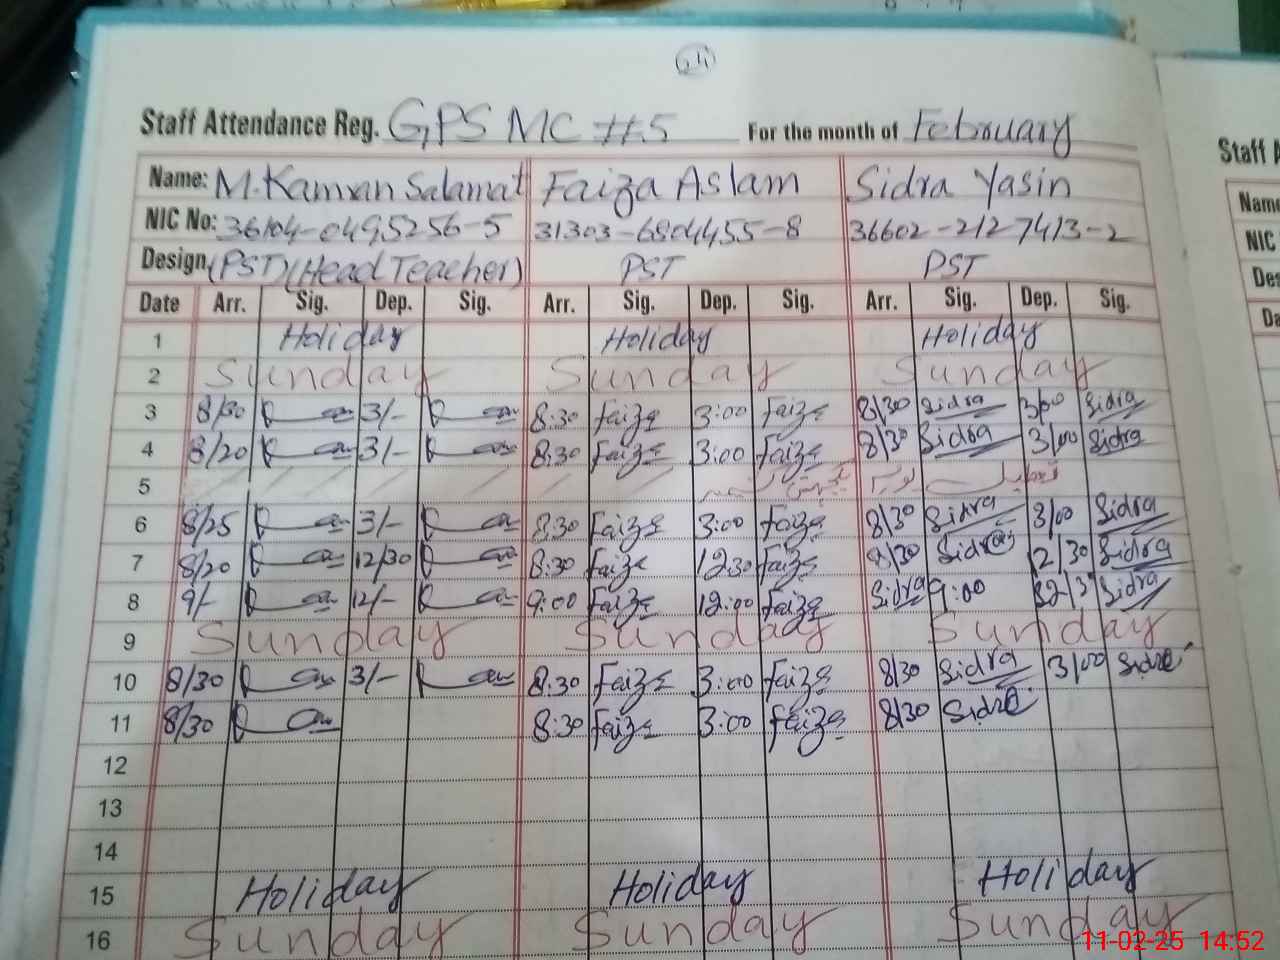 Staff Attendance Reg. GPS MC #5 For the month of February
Name: M.Kamran Salamat Faiza Aslam Sidra Yasin
NIC No: 36104-0495256-5 31303-6804455-8 36602-2127413-2
Design. (PST)(Head Teacher) PST PST
Date Arr. Sig. Dep. Sig. Arr. Sig. Dep. Sig. Arr. Sig. Dep. Sig.
1 Holiday Holiday Holiday
2 Sunday Sunday Sunday
3 8/30 3/- 8:30 Faiza 3:00 Faiza 8/30 Sidra 3/00 Sidra
4 8/20 3/- 8:30 Faiza 3:00 Faiza 8/30 Sidra 3/00 Sidra
5
6 8/25 3/- 8:30 Faiza 3:00 Faiza 8/30 Sidra 3/00 Sidra
7 8/20 12/30 8:30 Faiza 12:30 Faiza 8/30 Sidra 12/30 Sidra
8 9/- 12/- 9:00 Faiza 12:00 Faiza Sidra 9:00 Sidra
9 Sunday Sunday Sunday
10 8/30 3/- 8:30 Faiza 3:00 Faiza 8/30 Sidra 3/00 Sidra
11 8/30 8:30 Faiza 3:00 Faiza 8/30 Sidra
12
13
14
15 Holiday Holiday Holiday
16 Sunday Sunday Sunday
Staff A
Name
NIC
Des
Da
11-02-25 14:52